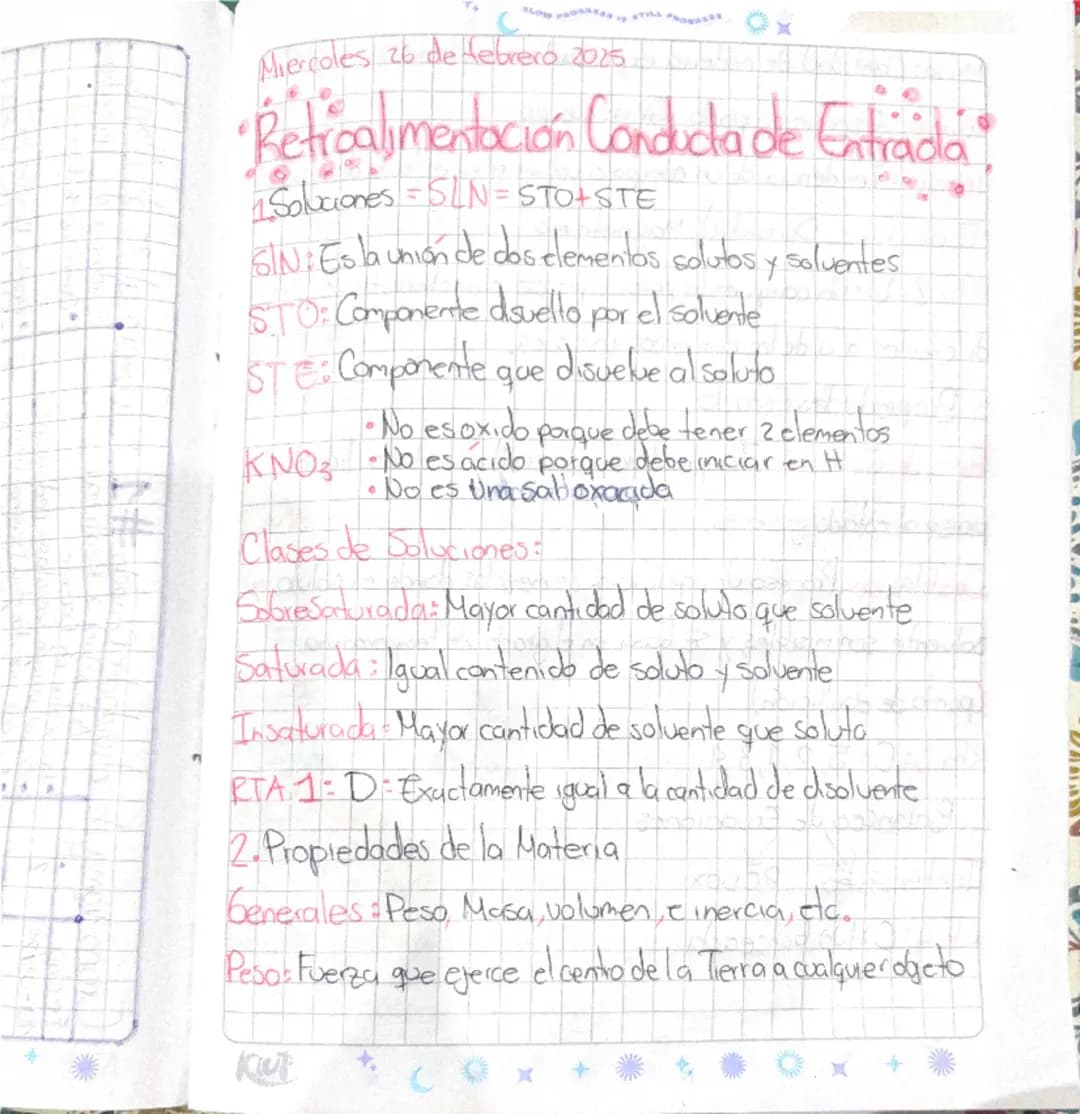 SLOW PROGRESS IS STILL PROGRESS
Miercoles 26 de febrero 2025
Retroalimentación Conducta de Entrada
1. Soluciones = SLN = STO + STE
SlN: Es la unión de dos elementos solutos y solventes
STO: Componente disuelto por el solvente
STE: Componente que disuelve al soluto
• No es oxido porque debe tener 2 elementos
KNO3 • No es ácido porque debe iniciar en H
• No es Una sal oxacida
Clases de Soluciones:
SobreSaturada: Mayor cantidad de soluto que solvente
Saturada: Igual contenido de soluto y solvente
Insaturada: Mayor cantidad de solvente que soluto
RTA 1: D: Exactamente igual a la cantidad de disolvente
2. Propiedades de la Materia
Generales: Peso, Masa, volumen, e inercia, etc.
Peso: Fuerza que ejerce el centro de la Tierra a cualquier ogeto
Kiut